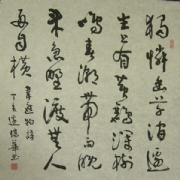 獨憐幽草澗邊
生上有黄鸝深樹
鳴春潮帶雨晚
來急野渡無人
舟自横
韋應物詩
丁亥